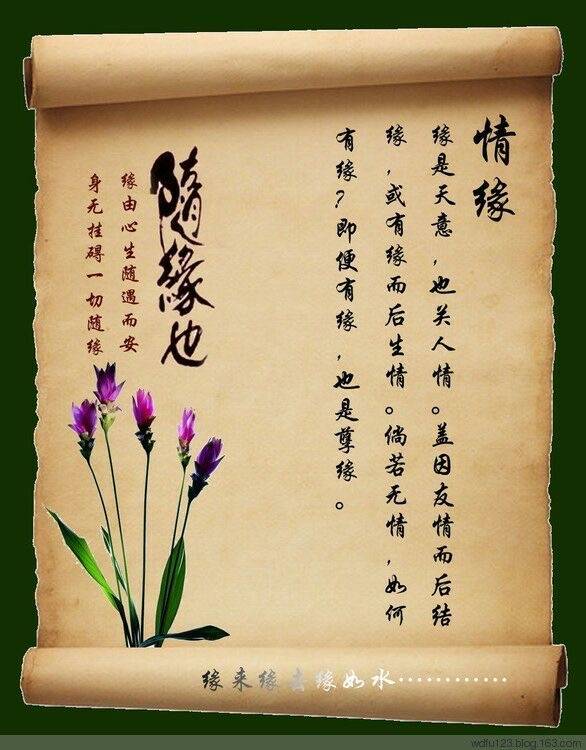 情缘
缘是天意，也关人情。盖因友情而后结
缘，或有缘而后生情。倘若无情，如何
有缘？即便有缘，也是孽缘。
隨緣也
缘由心生随遇而安
身无挂碍一切随缘
缘来缘去缘如水…………
wdfu123.blog.163.com